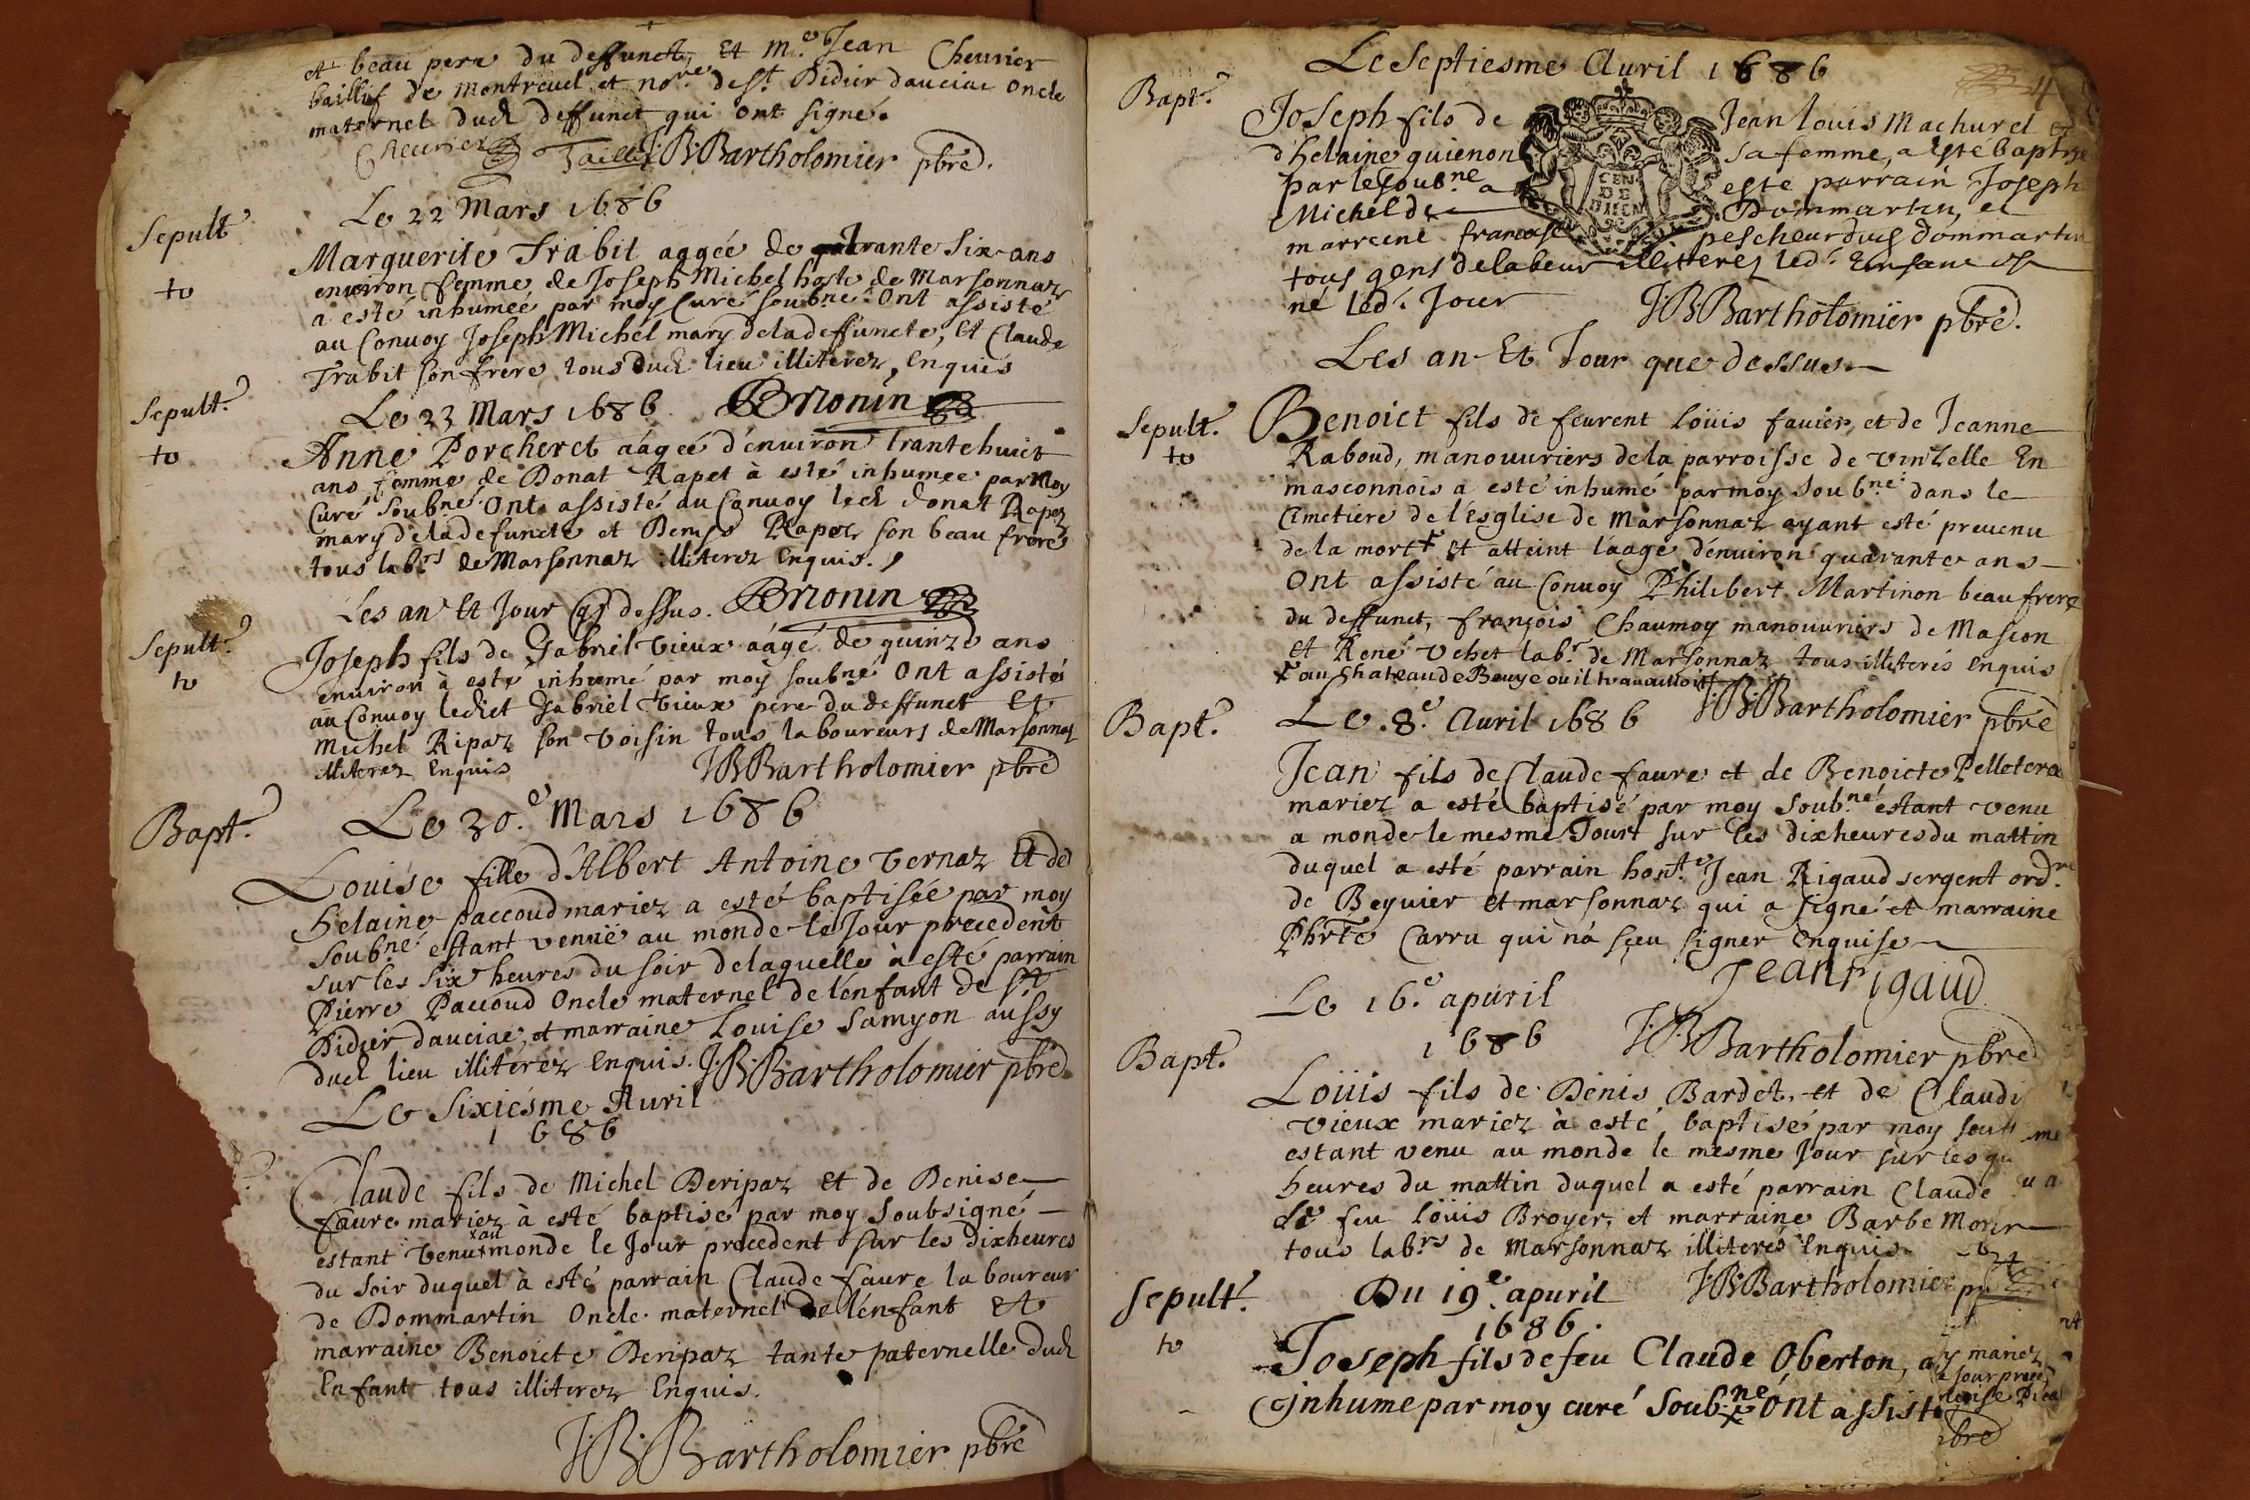 et beau pere du deffunct, Et m.e Jean Cheurier
baillif de Montreuel et no.re de S.t Didier dauciac oncle
maternel dud deffunct qui ont signé.
Cheurier Taillé J:B:Bartholomier pbrē.
Sepult.
Le 22 Mars 1686
Marguerite Trabit aagée de quarante Six ans
to
enuiron femme de Joseph Michel hoste de Marsonnaz
a esté inhumeé par moy Curé soub.né Ont assisté
au Conuoy Joseph Michel mary de la deffuncte, Et Claude
Trabit son frere tous dud lieu illiterez, Enquis
Sepult.
Le 23 Mars 1686 Brionin
to
Anne Porcheret aágeé d'enuiron trante huict
ans femme de Donat Rapet à esté inhumee par Moy
Curé Soub.né Ont assisté au Conuoy led Donat Rapez
mary de la defuncte et Denys Rapez son beau frere
tous lab.rs de Marsonnaz illiterez Enquis.
Les an Et Jour q dessus. Brionin
Sepult.
to
Joseph fils de Gabriel Vieux aágé de quinze ans
enuiron à esté inhumé par moy soub.né Ont assistés
au Conuoy ledict Gabriel Vieux pere du deffunct Et
Michel Ripaz son Voisin tous laboureurs de Marsonnaz
illiterez Enquis J:B:Bartholomier pbrē
Bapt.
Le 30.e Mars 1686
Louise fille d'Albert Antoine Vernaz Et de
Helaine paccoud mariez a esté baptisée par moy
Soub.né estant venuë au monde le Jour precedent
sur les six heures du soir de laquelle à esté parrain
Pierre Paccoud Oncle maternel de l'enfant de S.t
Didier dauciac, et marraine Louise Samyon aussy
dud lieu illiterez Enquis. J:B:Bartholomier pbrē
Le Sixiésme Auril
1686
Claude fils de Michel Deripaz Et de Denise
faure mariez à esté baptisé par moy Soubsigné
estant Venu x au monde le Jour precedent sur les dix heures
du soir duquel à esté parrain Claude faure laboureur
de Dommartin Oncle maternel de l'enfant Et
marraine Benoicte Deripaz tante paternelle dud
Enfant tous illiterez Enquis.
J:B:Bartholomier pbrē
Le Septiesme Auril 1686
Bapt.
Joseph fils de Jean Louis Machurel et
d'helaine guienon sa femme, a esté baptise
par le soub.né a esté parrain Joseph
Michel de Dommartin, et
marreine francoise pescheur dud dommartin
CEN DE
tous gens de labeur illiterez led.
né led. Jour J:B:Bartholomier pbrē.
Les an Et Jour que dessus
Sepult.
to
Benoict fils de feurent Loüis fauier, et de Jeanne
Raboud, manouuriers de la parroisse de Vinzelle En
masconnois a esté inhumé par moy Soub.né dans le
Cimetiere de l'Esglise de Marsonnaz ayant esté preuenu
de la mort Et atteint l'aage d'enuiron quarante ans
Ont assisté au Conuoy Philibert Martinon beau frere
du deffunct, françois Chaumoy manouuriers de Mascon
et René Vehet lab.r de Marsonnaz tous illiterés Enquis
au Chateau de Beuye ou il trauailloit J:B:Bartholomier pbrē
Bapt.
Le .8.e Auril 1686
Jean fils de Claude faure et de Benoicte Pelletera
mariez a esté baptisé par moy Soub.né estant venu
a monde le mesme Jour sur les dix heures du mattin
duquel a esté parrain hon.te Jean Rigaud sergent ord.re
de Beyuier et marsonnaz qui a signé et marraine
Ph.rte Carru qui n'a sçeu signer Enquise
Jean rigaud
Le 16.e apuril
1686 J:B:Bartholomier pbrē
Bapt.
Loüis fils de Denis Bardet, et de Claudi
Vieux mariez à esté baptisé par moy soub
estant venu au monde le mesme Jour sur les qu
heures du mattin duquel a esté parrain Claude
de feu Loüis Broyer, et marraine Barbe Morer
tous lab.rs de Marsonnaz illiterés Enquis.
J:B:Bartholomier
Sepult.
to
Du 19.e apuril
1686.
Joseph fils de feu Claude Oberton, a
inhume par moy curé Soub.né Ont assist
y mariez
e jour prece
pbrē